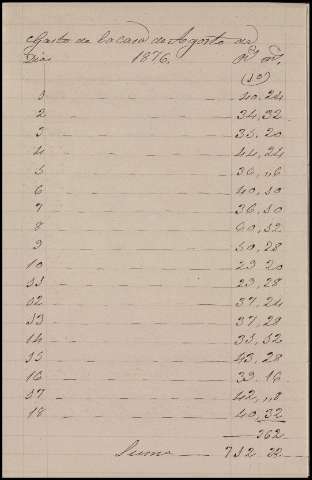 Gasto de la casa de Agosto de
Dias 1876. Ps. ms.
1 40,24
2 34,32
3 35,20
4 44,24
5 36,,6
6 40,10
7 36,10
8 60,12
9 50,28
10 23 20
11 23,28
12 37,24
13 37,28
14 35,12
15 43,28
16 39.16
17 42,,8
18 40,32
362
Suma 712 22